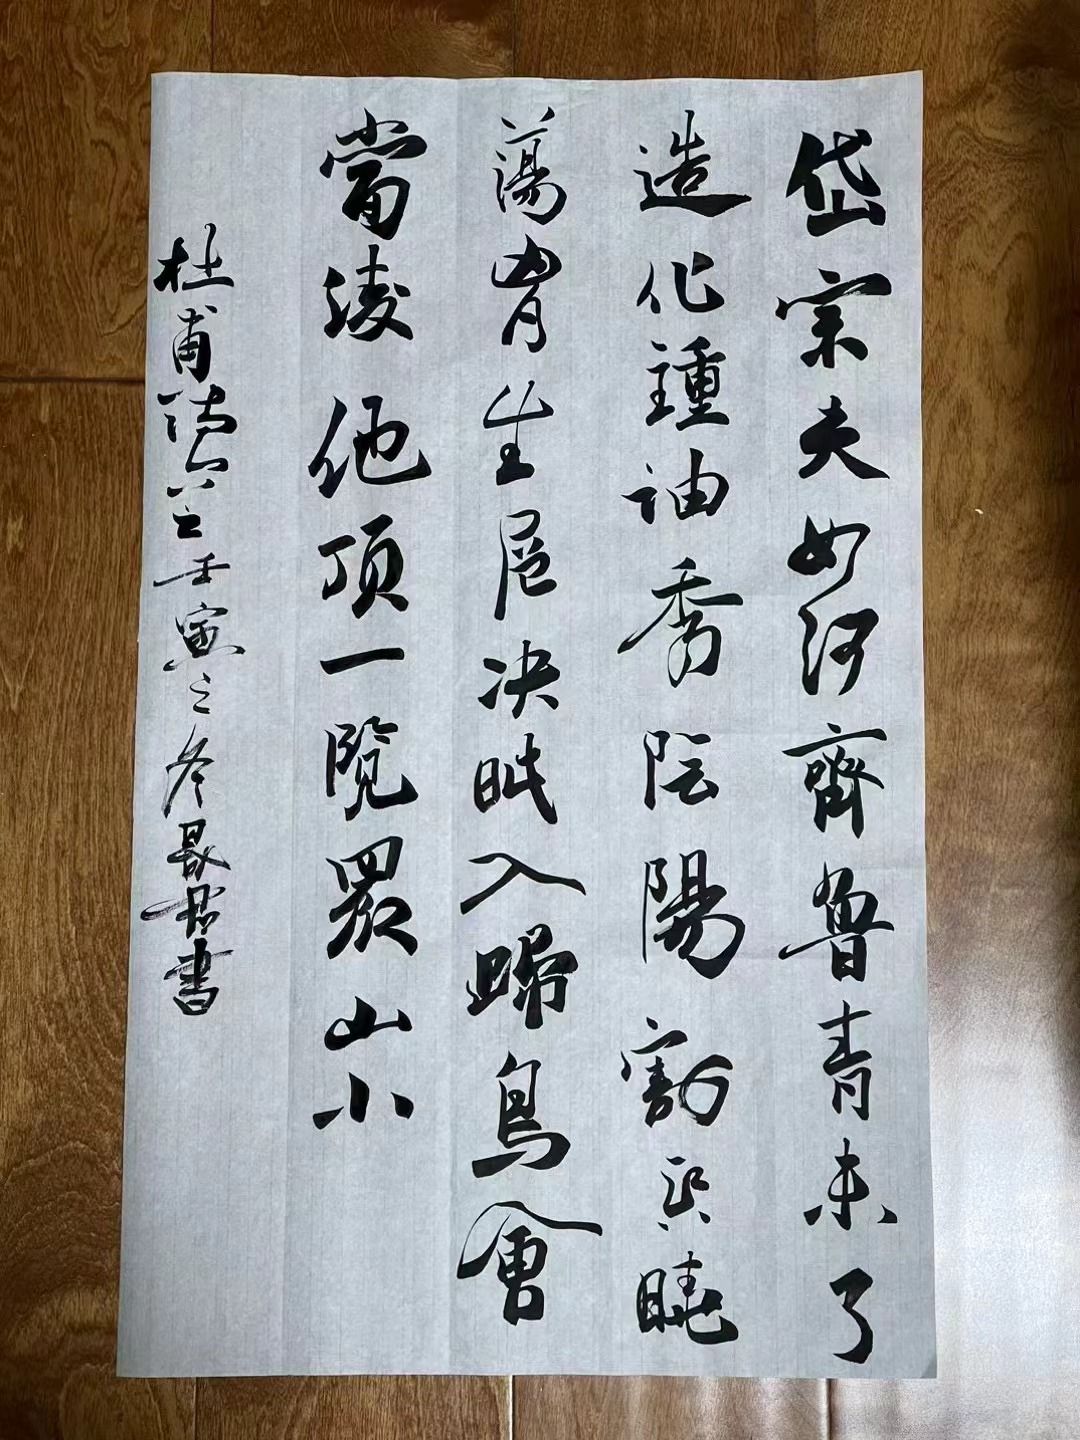 岱宗夫如何齊魯青未了
造化鍾神秀陰陽割昏曉
蕩胷生層決眥入歸鳥會
當凌絕頂一覽眾山小
杜甫詩壬寅之冬書